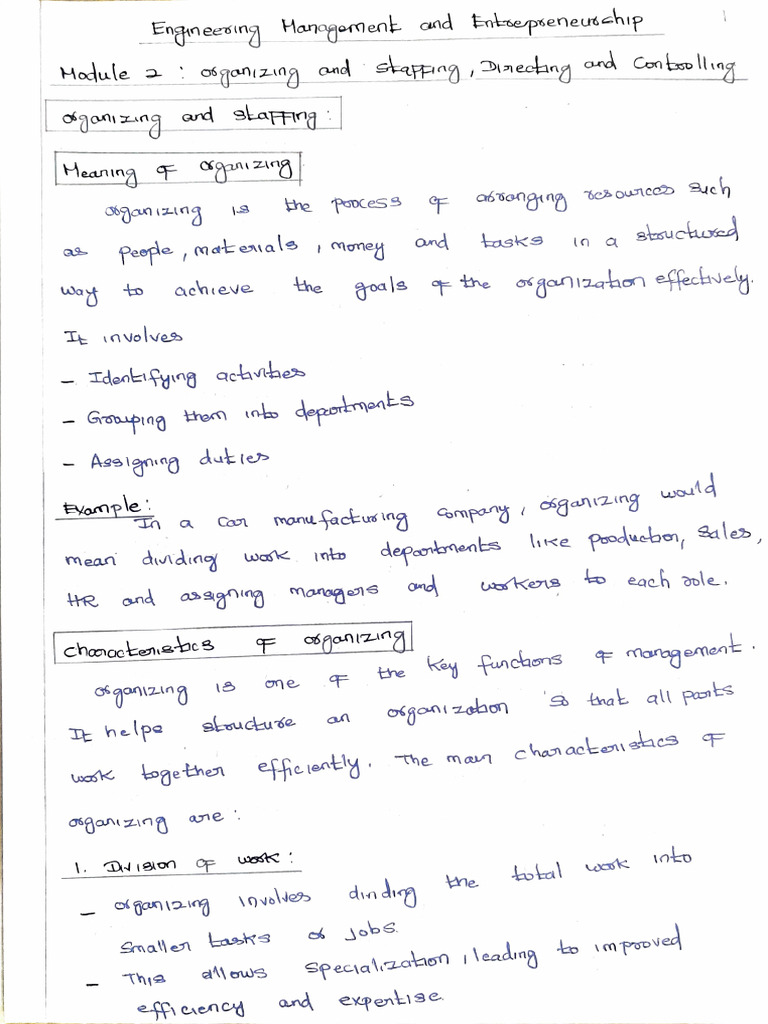 1
Engineering Management and Entrepreneurship
Module 2 : organizing and staffing, Directing and Controlling
organizing and staffing :
Meaning of organizing
organizing is the process of arranging resources such
as people, materials, money and tasks in a structured
way to achieve the goals of the organization effectively.
It involves
- Identifying activities
- Grouping them into departments
- Assigning duties
Example :
In a car manufacturing company, organizing would
mean dividing work into departments like production, sales,
HR and assigning managers and workers to each role.
characteristics of organizing
organizing is one of the key functions of management.
It helps structure an organization so that all parts
work together efficiently. The main characteristics of
organizing are :
1. Division of work :
- organizing involves dinding the total work into
smaller tasks or jobs.
- This allows specialization, leading to improved
efficiency and expertise.